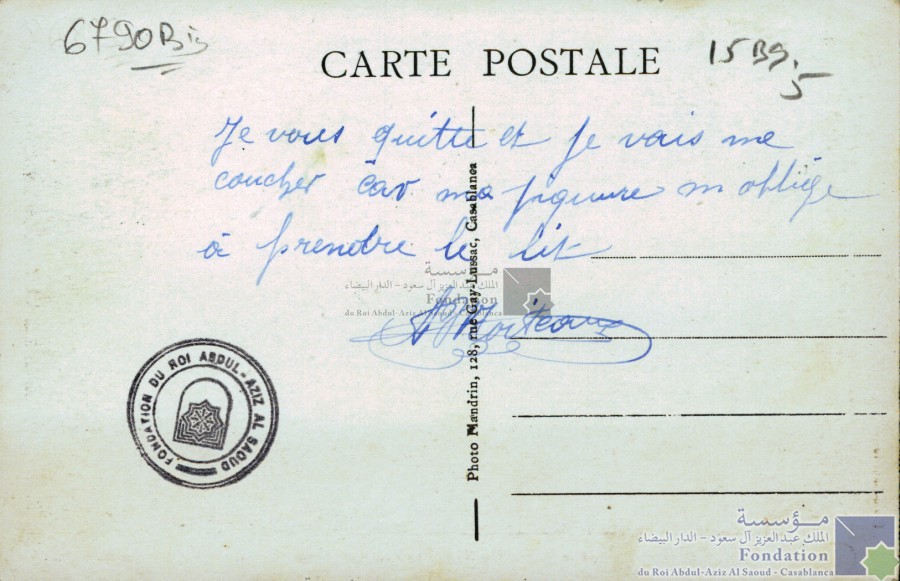 6790Bis
CARTE POSTALE
15B9.5
Je vous quitte et je vais me
coucher car ma piqure m'oblige
à prendre le lit
Photo Mandrin, 128, rue Gay-Lussac, Casablanca
مؤسسة
الملك عبد العزيز آل سعود - الدار البيضاء
Fondation
du Roi Abdul-Aziz Al Saoud - Casablanca
FONDATION DU ROI ABDUL-AZIZ AL SAOUD
مؤسسة
الملك عبد العزيز آل سعود - الدار البيضاء
Fondation
du Roi Abdul-Aziz Al Saoud - Casablanca